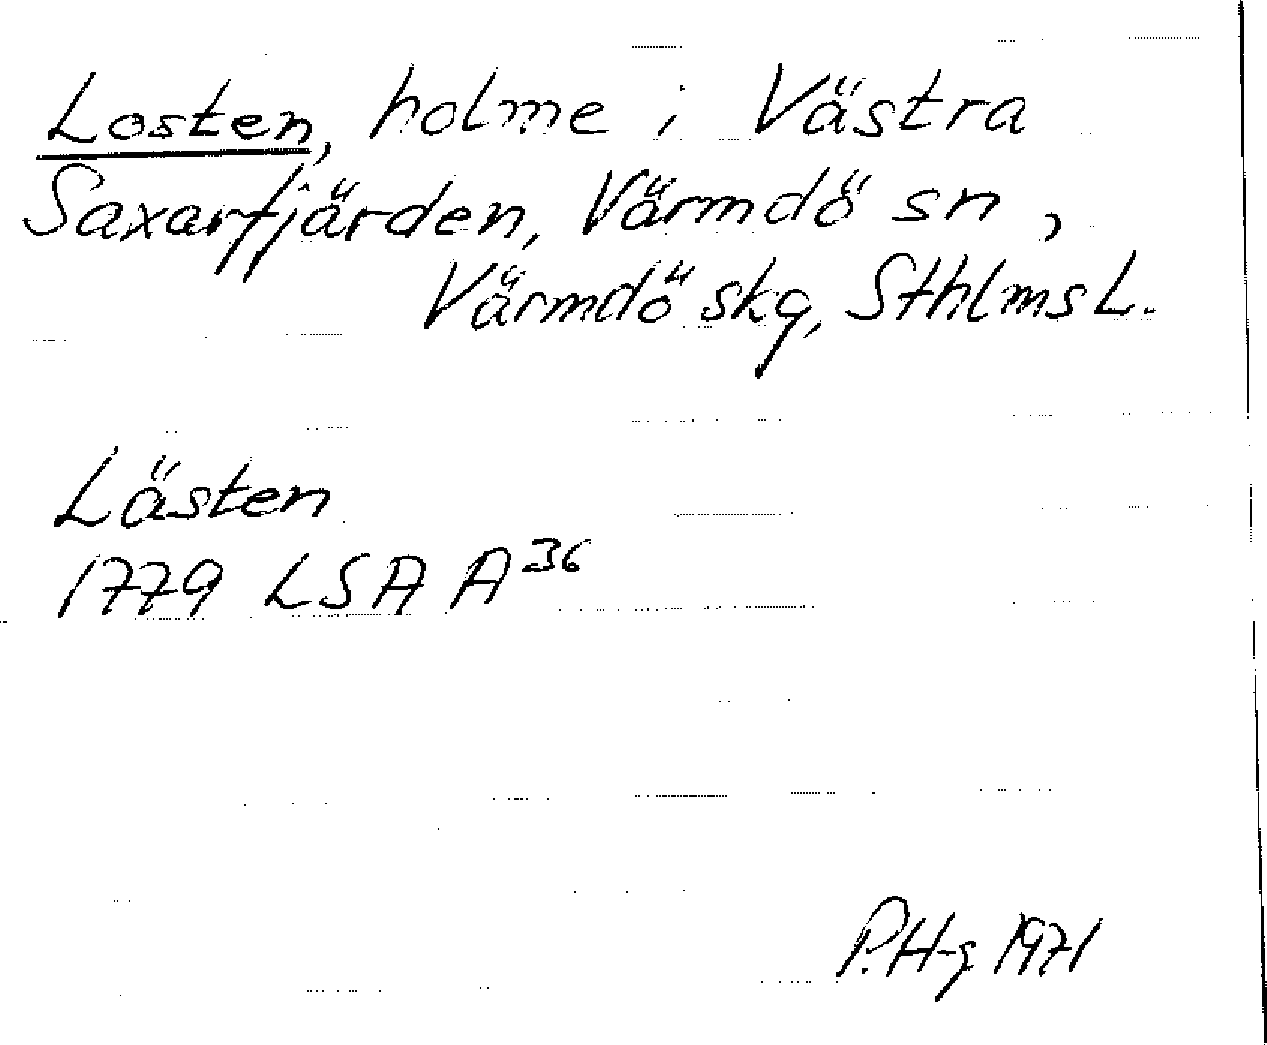 Losten, holme i Västra
Saxarfjärden, Värmdö sn,
Värmdö skg, Sthlms L.
Lästen
1779 LSA A36
P.H-g 1971